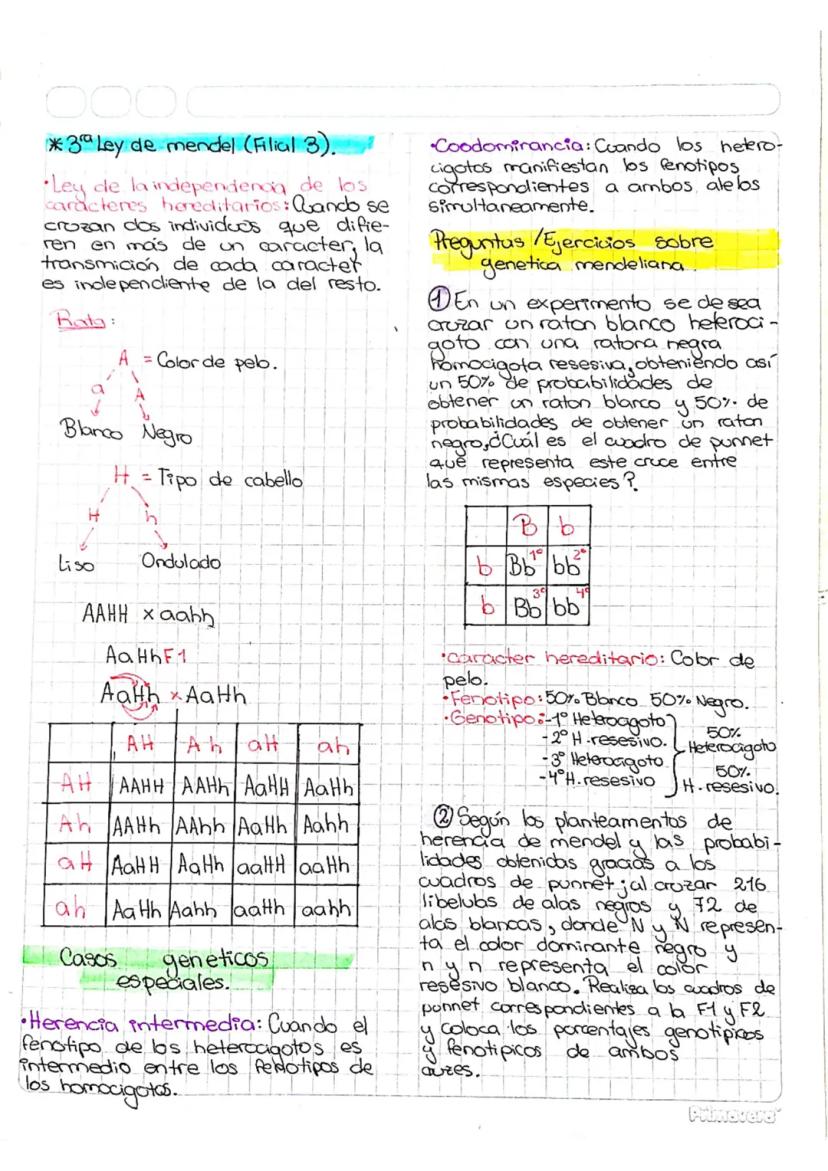 * 3ra Ley de mendel (Filial 3).
• Ley de la independencia de los
caracteres hereditarios: Cuando se
cruzan dos individuos que difie-
ren en más de un caracter, la
transmición de cada caracter
es independiente de la del resto.
Rata:
A = Color de pelo.
a A
Blanco Negro
H = Tipo de cabello
H h
Liso Ondulado
AAHH x aahh
AaHh F1
AaHh x AaHh
AH Ah aH ah
AH AAHH AAHh AaHH AaHh
Ah AAHh AAhh AaHh Aahh
aH AaHH AaHh aaHH aaHh
ah AaHh Aahh aaHh aahh
Casos geneticos
especiales.
• Herencia intermedia: Cuando el
fenotipo de los heterocigotos es
intermedio entre los fenotipos de
los homocigotos.
• Coodominancia: Cuando los hetero-
cigotos manifiestan los fenotipos
correspondientes a ambos alelos
simultaneamente.
Preguntas / Ejercicios sobre
genetica mendeliana.
① En un experimento se desea
cruzar un raton blanco heteroci-
goto con una ratona negra
homocigota resesiva, obteniendo así
un 50% de probabilidades de
obtener un raton blanco y 50% de
probabilidades de obtener un raton
negro, ¿Cuál es el cuadro de punnet
que representa este cruce entre
las mismas especies?
B b
b Bb 1° bb 2°
b Bb 3° bb 4°
• caracter hereditario: Color de
pelo.
• Fenotipo: 50% Blanco 50% Negro.
• Genotipo: - 1° Heterocigoto
- 2° H. resesivo.
- 3° Heterocigoto
- 4° H. resesivo
50%
Heterocigoto
50%
H. resesivo.
② Según los planteamentos de
herencia de mendel y las probabi-
lidades obtenidas gracias a los
cuadros de punnet; al cruzar 216
libelulas de alas negras y 72 de
alas blancas, donde N y N represen-
ta el color dominante negro y
n y n representa el color
resesivo blanco. Realiza los cuadros de
punnet correspondientes a la F1 y F2
y coloca los porcentajes genotipicos
y fenotipicos de ambos
cruzes.
Primavera